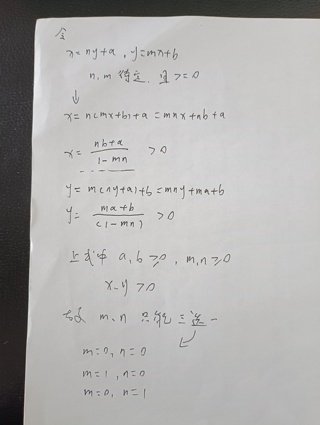 令
x=ny+a, y=mx+b
n,m 待定, 且>=0
↓
x=n(mx+b)+a=mnx+nb+a
x= nb+a / 1-mn >0
y=m(ny+a)+b=mny+ma+b
y= ma+b / (1-mn) >0
上式中 a,b≥0, m,n≥0
x-y>0
故 m,n 只能三选一
m=0, n=0
m=1, n=0
m=0, n=1